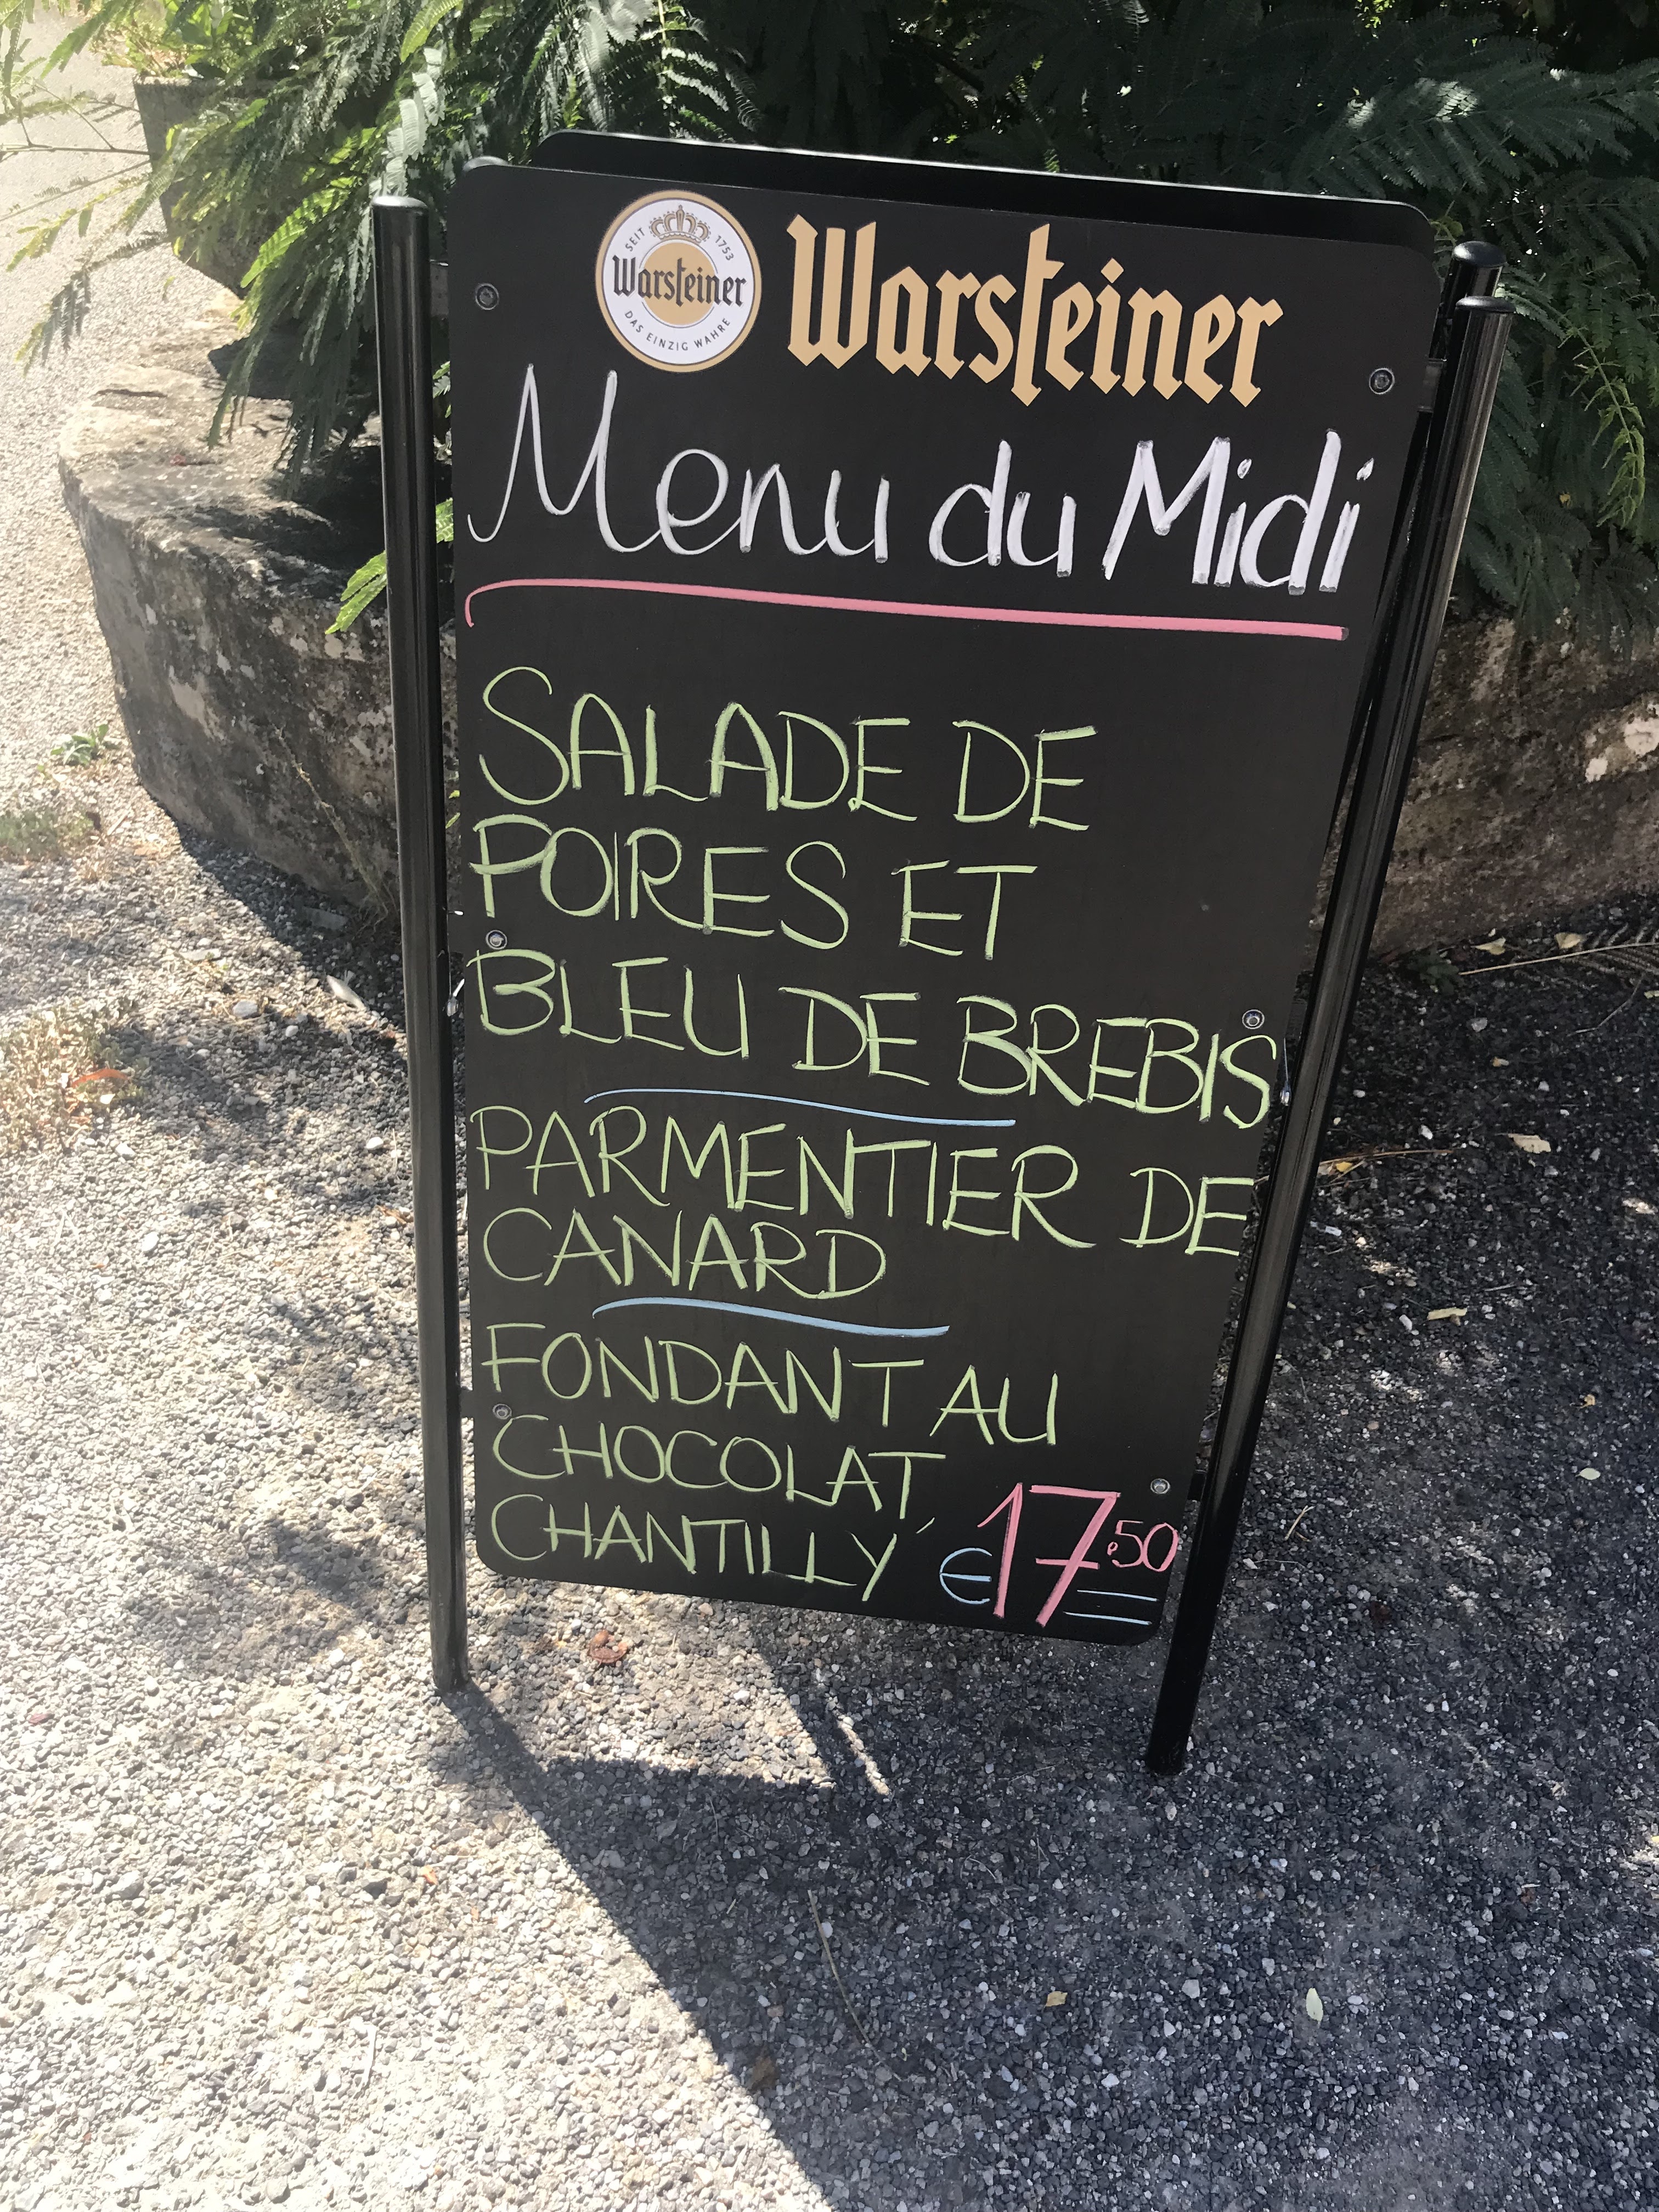 SEIT 1753
Warsteiner
DAS EINZIG WAHRE
Warsteiner
Menu du Midi
SALADE DE
POIRES ET
BLEU DE BREBIS
PARMENTIER DE
CANARD
FONDANT AU
CHOCOLAT
CHANTILLY
€17.50